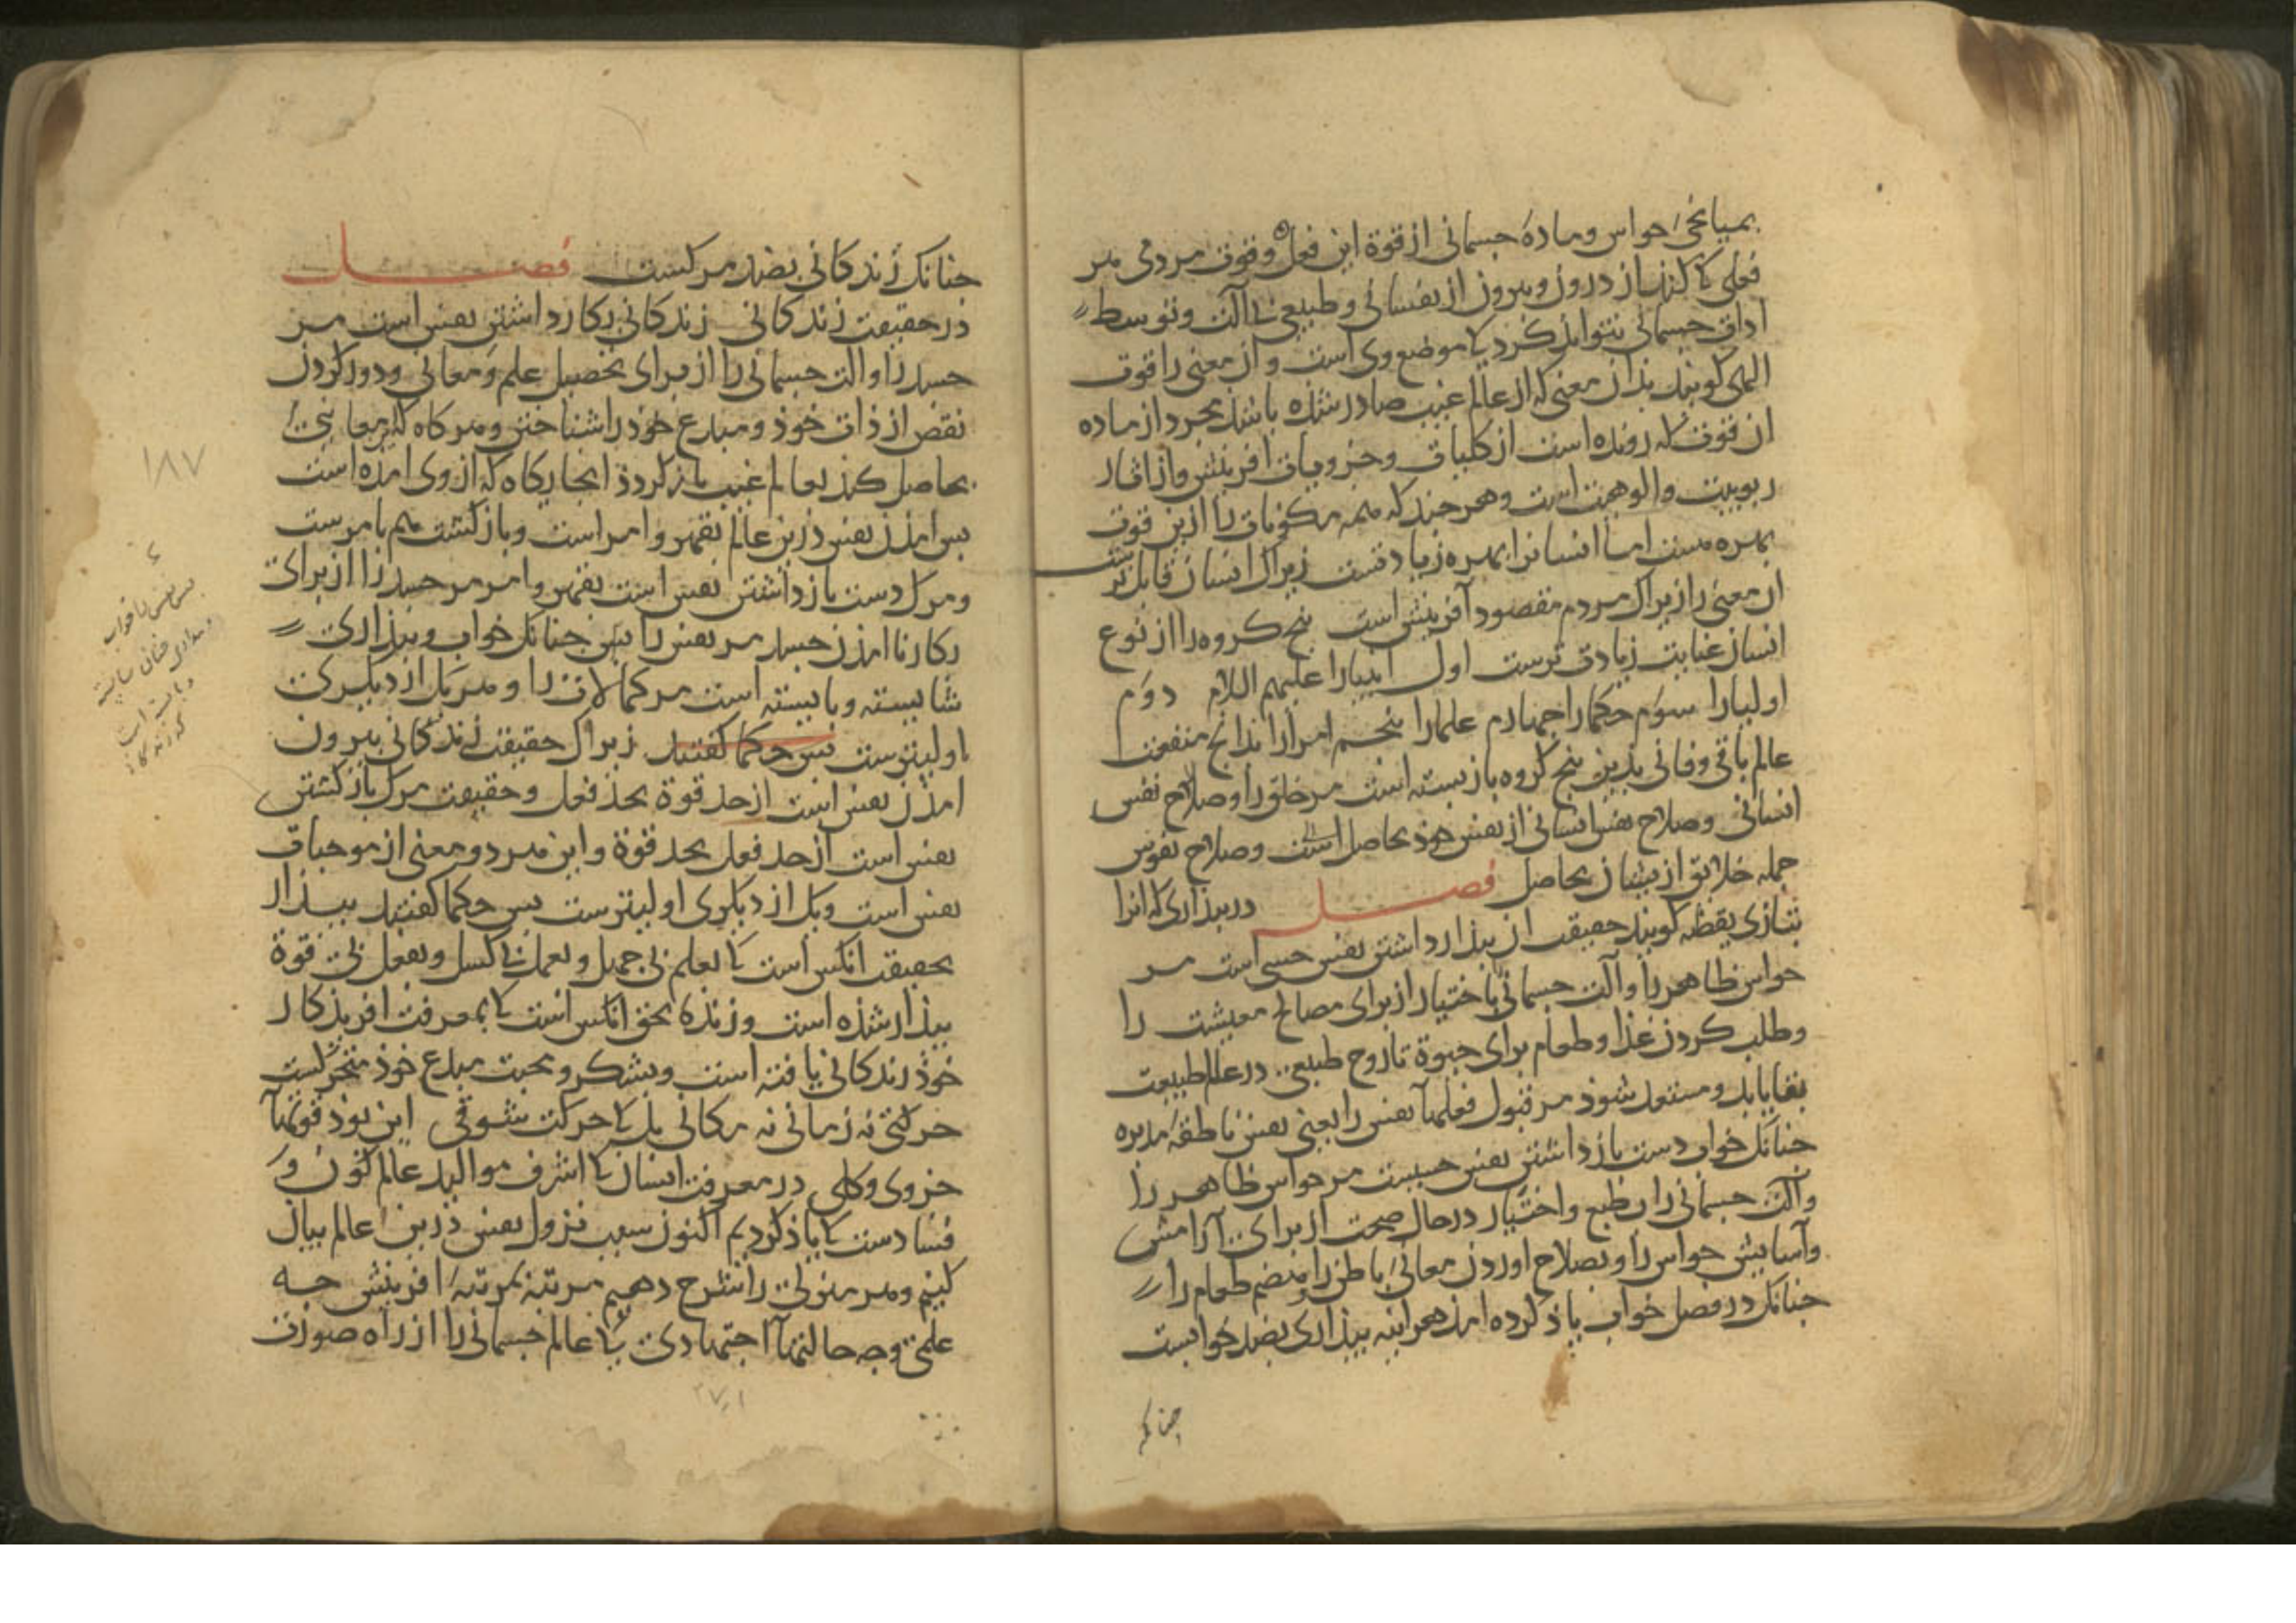 بمیانجی حواس و مادهٔ جسمانی از قوة این فعل و قوت مردمی هر
فعلی کا کند از درون و بیرون از نفسانی و طبیعی بی آلت و توسط
ادات جسمانی نتواند کرد کا موضع وی است و آن معنی را قوت
الهی کویند بذان معنی که از عالم غیب صادر شذه باشد مجرد از ماده
ان قوت که رونده است از کلیات و جزویات افرینش و از اثار
ربوبیت و الوهیت است و هر جند که همه مکونات را ازین قوت
بهره هست اما انسانرا بهره زیادتست زیراک انسان قابل تر
ان معنی را زیراک مردم مقصود آفرینش است بنج کروه را از نوع
انسان عنایت زیادت ترست اول انبیارا علیهم السلام دوم
اولیارا سوم حکمارا جهارم علمارا بنجم امرارا بذانج منفعت
عالم باقی و فانی بذین بنج کروه باز بسته است مر خلق را و صلاح نفس
انسانی و صلاح نفس انسانی از نفس خوذ بحاصل است و صلاح نفوس
جمله خلایق ازیشان بحاصل فصل در بیذاری که انرا
بتازی یقظه کویند حقیقت ان بیذار داشتن نفس حسی است مر
حواس ظاهر را و آلت جسمانی باختیار از برای مصالح معیشت را
و طلب کردن غذا و طعام برای حیوة تا روح طبیعی در عالم طبیعت
بقا یابد و مستعد شوذ مر قبول فعلهآ نفس را یعنی نفس ناطقهٔ مدبره
جنانک خواب دست باز داشتن نفس حسیست مر حواس ظاهر را
و آلت جسمانی را بطبع و اختیار در حال صحت از برای آرامش
و آسایش حواس را و بصلاح اوردن معانی باطن را و هضم طعام را
جنانک در فصل خواب یاذ کرده امذ هر اینه بیذاری بضد خوابست
جنانکه
جنانک زندکانی بضد مرکست فصل
در حقیقت زندکانی زندکانی بکار داشتن نفس است مر
جسد را و الت جسمانی را از برای تحصیل علم و معانی و دور کردن
نقص از ذات خوذ و مبدع خوذ را شناختن و هر کاه که این معانی
بحاصل کند بعالم غیب باز کردذ انجایکاه که از وی امذه است
بس امذن نفس درین عالم بقهر و امر است و باز کشت هم بامرست
و مرک دست باز داشتن نفس است بقهر و امر مر جسد را از برای
بکار نا امذن جسد مر نفس را بس جنانک خواب و بیذاری
شایسته و بایسته است مر کمالات را و هر یک از دیکری
اولیترست بس حکما کفتند زیراک حقیقت زندکانی بیرون
امذن نفس است از حد قوة بحد فعل و حقیقت مرک باز کشتن
نفس است از حد فعل بحد قوة و این هر دو معنی از موجبات
نفس است و یک از دیکری اولیترست بس حکما کفتند بیذار
بحقیقت انکس است کا بعلم بی جهل و بعمل بی کسل و بفعل بی قوة
بیذار شذه است و زنده بحق انکس است کا بمعرفت افریذکار
خوذ زندکانی یافته است و بشکر و محبت مبدع خوذ متحرکست
حرکتی نه زمانی نه مکانی بل کا حرکت شوقی این بوذ قوتهآ
جزوی و کلی در معرفت انسان کا اشرف موالید عالم کون و
فسادست کا یاذ کردیم اکنون سبب نزول نفس درین عالم بیان
کنیم و هر منزلی را شرح دهیم مرتبه بمرتبهٔ افرینش جه
علمی و جه حالتهآ اجتهادی کا عالم جسمانی را از راه صورت
۱۸۷